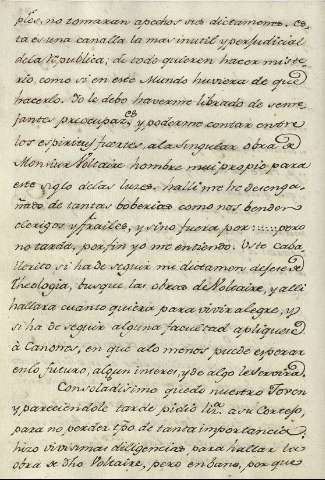 pies, no tomaran apechos sus dictamens. es-
ta es una canalla la mas inutil y perjudicial
dela Republica; de todo quieren hacer miste-
rio, como si en este Mundo huviera de que
hacerlo. Io le debo haverme librado de seme-
jantes preocupaz.es y poderme contar entre
los espiritus fuertes, ala singular obra de
Monsiur Voltaire hombre mui propio para
este siglo delas luzes. halli me he desenga-
ñado de tantas boberias como nos benden
clerigos y frailes, y sino fuera, por ........ pero
no tarda, porfin yo me entiendo. Uste Caba-
llerito, si ha de seguir mi dictamen dejese de
Theologia, busque las obras de Voltaire, y alli
hallara cuanto quiera para vivir alegre, y
si ha de seguir alguna facultad apliquese
à Canones, en que alo menos puede esperar
enlo futuro, algun interes, y de algo le servira.
Consoladisimo quedo nuestro Joven
y pareciendole tarde pidio lia. a su Cortejo,
para no perder tpo de tanta importancia,
hizo vivisimas diligencias para hallar la
obra de dho Voltaire, pero enbano, por que